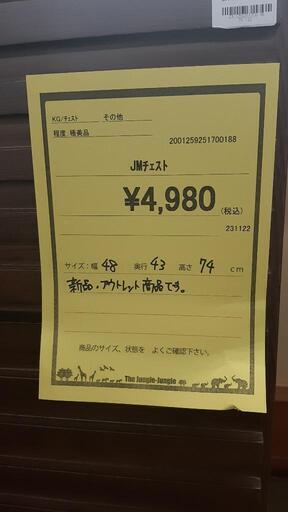 KG/チェスト その他
程度:極美品
2001259251700188
JMチェスト
¥4,980(税込)
231122
サイズ:幅 48 奥行 43 高さ 74 cm
新品・アウトレット商品です。
商品のサイズ、状態を よくご確認下さい。
The Jungle-Jungle